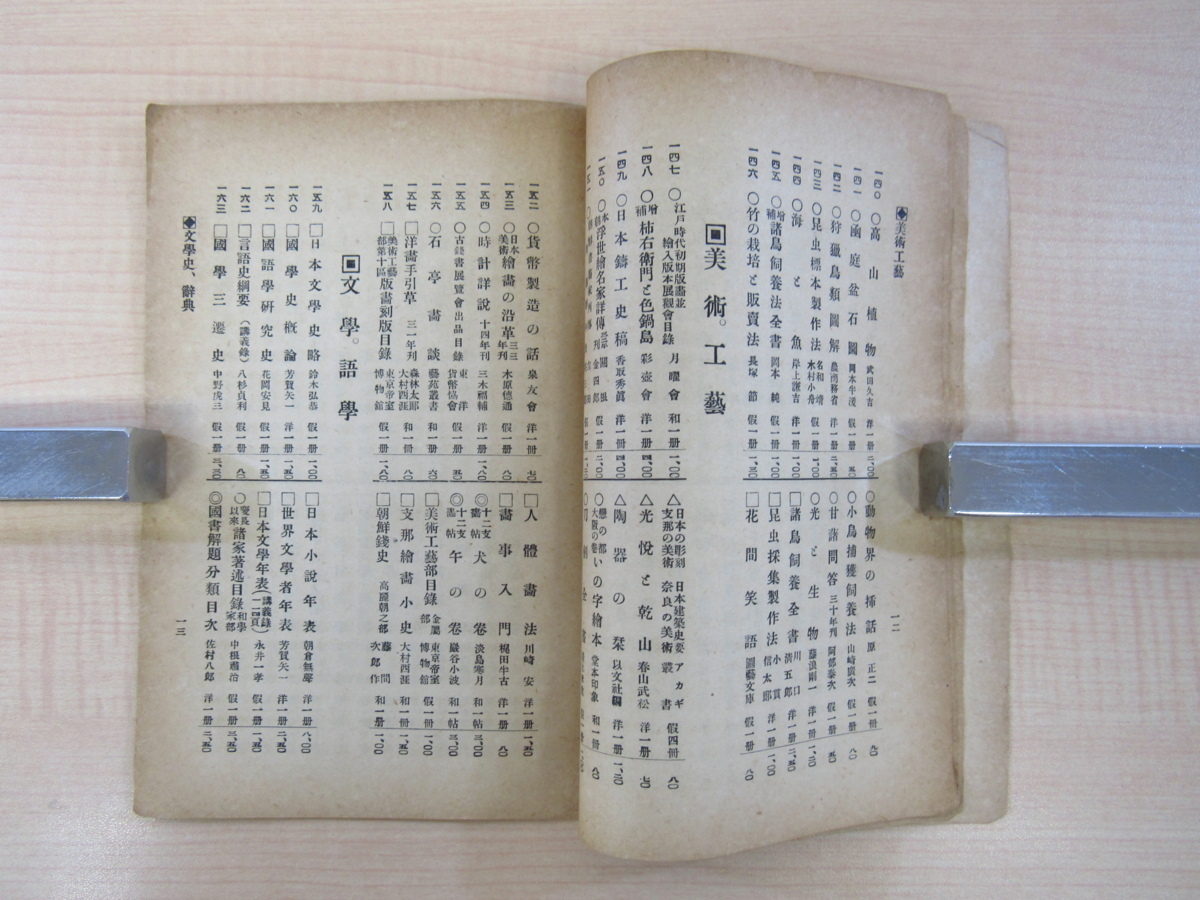 ◆美術工藝
一四〇 〇高山植物 武田久吉 洋一冊
一四一 〇函庭盆石圖 岡本半渓 假一冊
一四二 〇狩獵鳥類圖解 農商務省 洋一冊
一四三 〇昆虫標本製作法 名和靖 木村小舟 假一冊
一四四 〇海と魚 岸上謙吉 洋一冊 一、〇〇
一四五 〇增補諸鳥飼養法全書 岡本純 假一冊
一四六 〇竹の栽培と販賣法 長塚節 假一冊 一、三〇
▣美術。工藝
一四七 〇江戸時代初期版畫並繪入版本展觀會目錄 月曜會 和一冊 一、〇〇
一四八 〇增補柿右衛門と色鍋島 彩壺會 洋一冊
一四九 〇日本鑄工史稿 香取秀眞 洋一冊
一五〇
〇動物界の挿話 原正二 假一冊
〇小鳥捕獲飼養法 山崎廣次 假一冊
〇甘藷問答 三十年刊 阿部泰次 假一冊
〇光と生物 藤浪剛一 洋一冊
□諸鳥飼養全書 川口清五郎 洋一冊
□昆虫採集製作法 小貫信太郎 洋一冊 一、〇〇
□花間笑語 園藝文庫 假一冊 八〇
△日本の彫刻 日本建築史要 アカギ
△支那の美術 奈良の美術 叢書 假四冊 八〇
△光悅と乾山 春山武松 洋一冊 七〇
△陶器の栞 以文社編 洋一冊
い の字繪本 堂本印象 和一冊 八〇
一二
一五二 〇貨幣製造の話 泉友會 洋一冊 七〇
一五三 〇日本美術繪畫の沿革 三三年刊 木原德通 假一冊 八〇
一五四 〇時計詳說 十四年刊 三木福輔 洋一冊 一、八〇
一五五 〇古錢書展覽會出品目錄 東洋貨幣協會 假一冊 五〇
一五六 〇石亭畵談 藝苑叢書 假一冊 六〇
一五七 □洋畵手引草 三一年刊 森林太郎 大村西涯 和一冊 八〇
一五八 □美術工藝部第十區版畵刻版目錄 東京帝室博物館 假一冊 一、八〇
▣文學。語學
一五九 □日本文學史略 鈴木弘恭 假一冊 一、〇〇
一六〇 □國學史槪論 芳賀矢一 洋一冊 一、五〇
一六一 □國語學研究史 花岡安見 假一冊 一、五〇
一六二 □言語史綱要（講義錄） 八杉貞利 假一冊 八〇
一六三 □國學三遷史 中野虎三 假一冊 三、三〇
◆文學史、辭典
□人體畵法 川崎安 洋一冊 一、五〇
□畵事入門 梶田半古 洋一冊 八〇
◎十二支畵帖 犬の卷 淡島寒月 和一帖 三、〇〇
◎十二支畵帖 午の卷 巖谷小波 和一帖 三、〇〇
□美術工藝部目錄 金屬部 東京帝室博物館 假一冊 一、〇〇
□支那繪畵小史 大村西涯 和一冊 一、五〇
□朝鮮錢史 高麗朝之部 藤間次郎作 和一冊 一、〇〇
□日本小說年表 朝倉無聲 洋一冊 八、〇〇
□世界文學者年表 芳賀矢一 洋一冊 二、五〇
□日本文學年表（講義錄）（一一四頁） 永井一孝 假一冊 一、五〇
〇慶長以來諸家著述目錄 和學家部 中根肅治 假一冊 三、五〇
◎國書解題分類目次 佐村八郎 洋一冊 二、五〇
一三